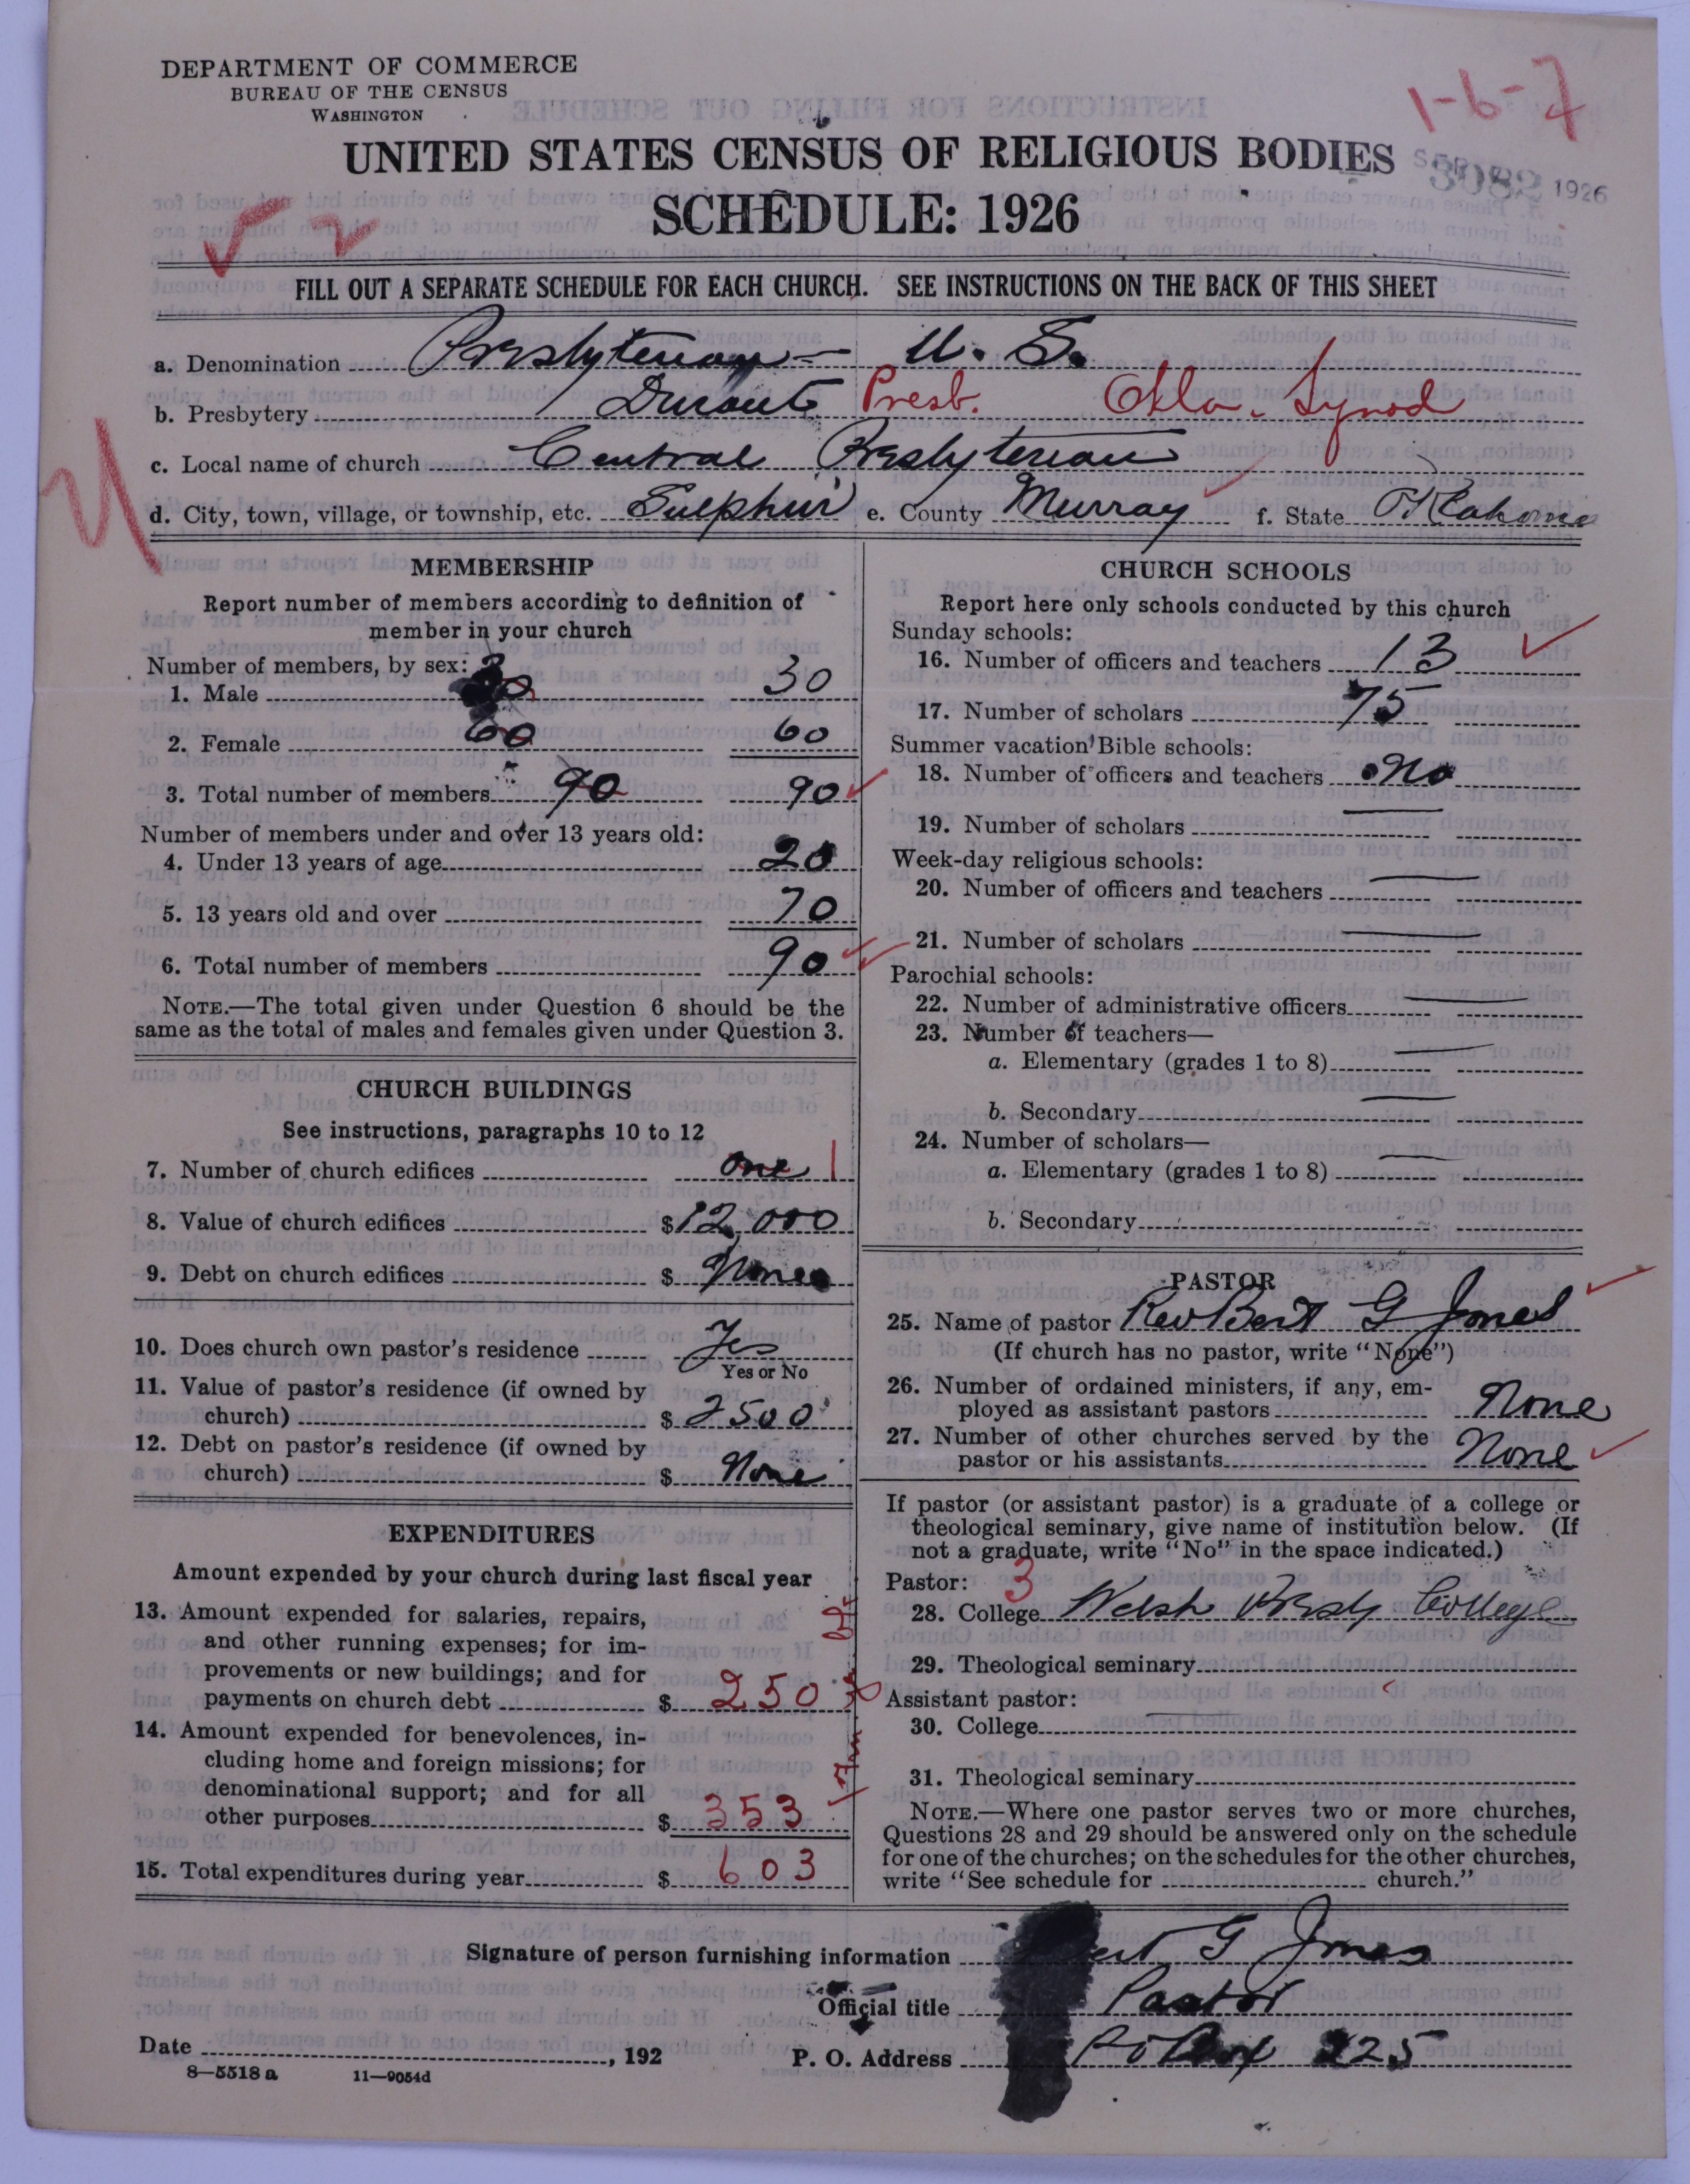 DEPARTMENT OF COMMERCE
BUREAU OF THE CENSUS
WASHINGTON
1-6-7
UNITED STATES CENSUS OF RELIGIOUS BODIES
3082 1926
SCHEDULE: 1926
2
FILL OUT A SEPARATE SCHEDULE FOR EACH CHURCH. SEE INSTRUCTIONS ON THE BACK OF THIS SHEET
a. Denomination Presbyterian - U. S.
b. Presbytery Durant Presb. Okla. Synod
c. Local name of church Central Presbyterian
d. City, town, village, or township, etc. Sulphur e. County Murray f. State Oklahoma
MEMBERSHIP
Report number of members according to definition of
member in your church
Number of members, by sex:
1. Male 30 30
2. Female 60 60
3. Total number of members 90 90
Number of members under and over 13 years old:
4. Under 13 years of age 20
5. 13 years old and over 70
6. Total number of members 90
NOTE.—The total given under Question 6 should be the
same as the total of males and females given under Question 3.
CHURCH BUILDINGS
See instructions, paragraphs 10 to 12
7. Number of church edifices one 1
8. Value of church edifices $ 12,000
9. Debt on church edifices $ None
10. Does church own pastor's residence Yes
Yes or No
11. Value of pastor's residence (if owned by
church) $ 2500
12. Debt on pastor's residence (if owned by
church) $ None
EXPENDITURES
Amount expended by your church during last fiscal year
13. Amount expended for salaries, repairs,
and other running expenses; for im-
provements or new buildings; and for
payments on church debt $ 250
14. Amount expended for benevolences, in-
cluding home and foreign missions; for
denominational support; and for all
other purposes $ 353
15. Total expenditures during year $ 603
CHURCH SCHOOLS
Report here only schools conducted by this church
Sunday schools:
16. Number of officers and teachers 13
17. Number of scholars 75
Summer vacation Bible schools:
18. Number of officers and teachers No
19. Number of scholars
Week-day religious schools:
20. Number of officers and teachers
21. Number of scholars
Parochial schools:
22. Number of administrative officers
23. Number of teachers—
a. Elementary (grades 1 to 8)
b. Secondary
24. Number of scholars—
a. Elementary (grades 1 to 8)
b. Secondary
PASTOR
25. Name of pastor Rev Bert G Jones
(If church has no pastor, write "None")
26. Number of ordained ministers, if any, em-
ployed as assistant pastors None
27. Number of other churches served by the
pastor or his assistants None
If pastor (or assistant pastor) is a graduate of a college or
theological seminary, give name of institution below. (If
not a graduate, write "No" in the space indicated.)
Pastor: 3
28. College Welsh Presby College
29. Theological seminary
Assistant pastor:
30. College
31. Theological seminary
NOTE.—Where one pastor serves two or more churches,
Questions 28 and 29 should be answered only on the schedule
for one of the churches; on the schedules for the other churches,
write "See schedule for church."
Signature of person furnishing information Bert G Jones
Official title Pastor
Date , 192 P. O. Address PO Box 225
8—5518 a 11—9054d